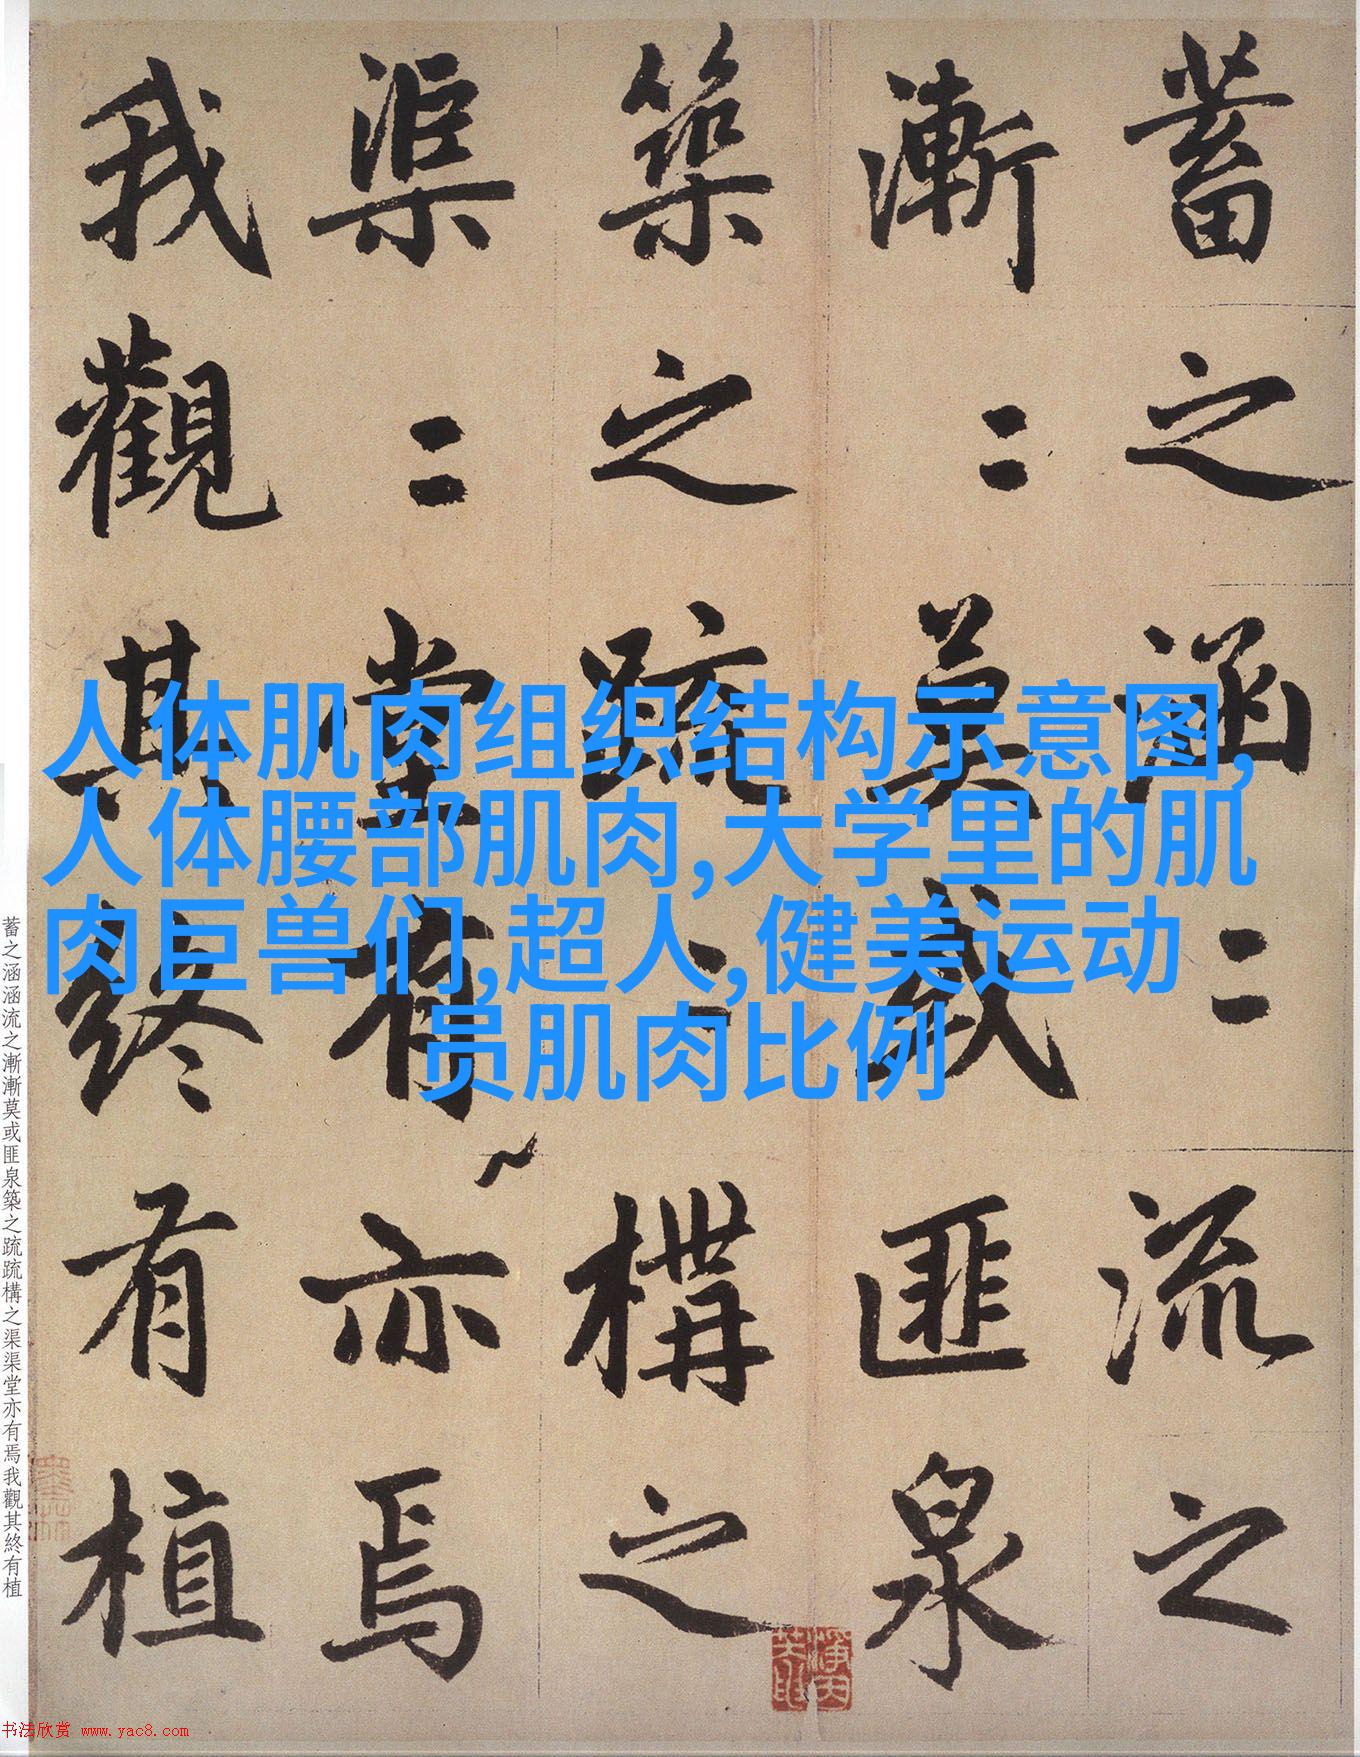 蓄之涵〻流之
漸〻莫或匪泉
築之疏〻構之
渠〻堂有亦焉
我觀其終有植
人体肌肉组织结构示意图,
人体腰部肌肉,大学里的肌
肉巨兽们,超人,健美运动
员肌肉比例
蓄之涵涵流之漸漸莫或匪泉築之疏疏構之渠渠堂亦有焉我觀其終有植
书法欣赏 www.yac8.com